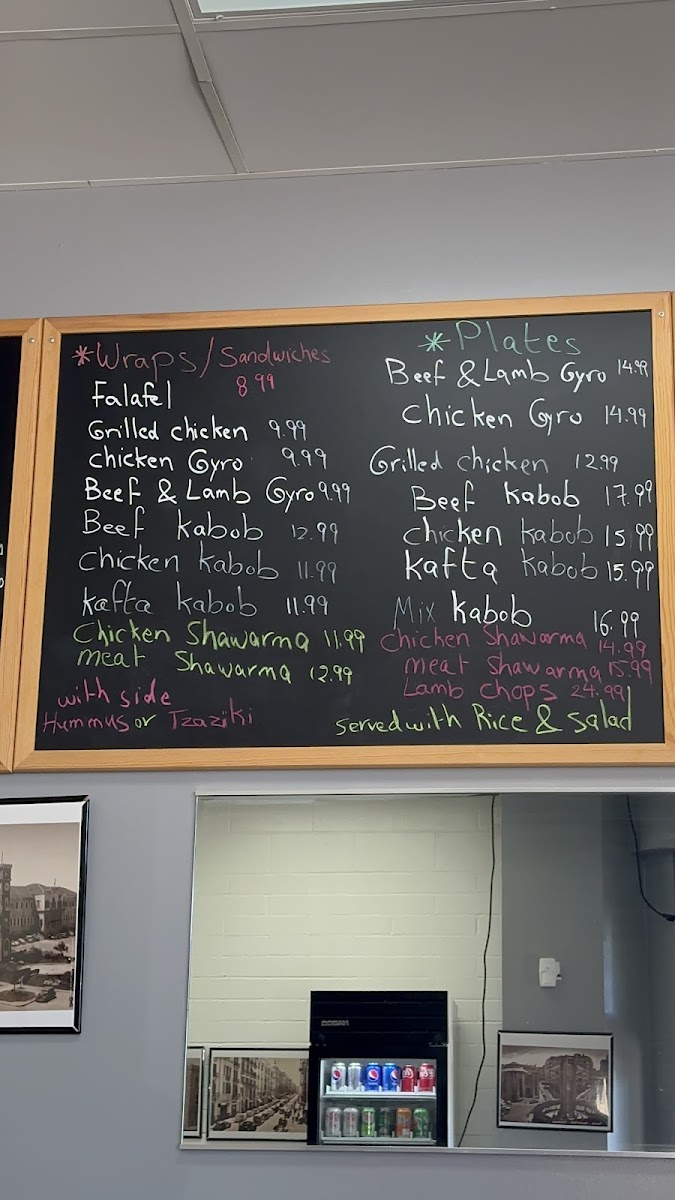 *Wraps/Sandwiches
Falafel 8.99
Grilled chicken 9.99
chicken Gyro 9.99
Beef & Lamb Gyro 9.99
Beef kabob 12.99
Chicken kabob 11.99
kafta kabob 11.99
Chicken Shawarma 11.99
meat Shawarma 12.99
with side
Hummus or Tzaziki
*Plates
Beef & Lamb Gyro 14.99
chicken Gyro 14.99
Grilled chicken 12.99
Beef kabob 17.99
chicken kabob 15.99
kafta kabob 15.99
Mix kabob 16.99
Chicken Shawarma 14.99
meat Shawarma 15.99
Lamb Chops 24.99
served with Rice & Salad